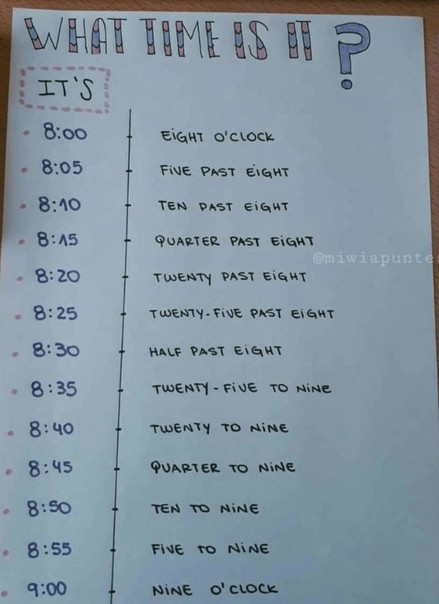 WHAT TIME IS IT ?
IT'S
8:00 EIGHT O'CLOCK
8:05 FIVE PAST EIGHT
8:10 TEN PAST EIGHT
8:15 QUARTER PAST EIGHT
@miwiapuntes
8:20 TWENTY PAST EIGHT
8:25 TWENTY-FIVE PAST EIGHT
8:30 HALF PAST EIGHT
8:35 TWENTY-FIVE TO NINE
8:40 TWENTY TO NINE
8:45 QUARTER TO NINE
8:50 TEN TO NINE
8:55 FIVE TO NINE
9:00 NINE O'CLOCK